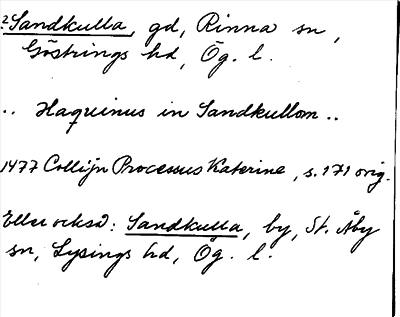 ? Sandkulla, gd, Rinna sn,
Göstrings hd, Ög. l.
.. Haquinus in Sandkullom ..
1477 Collijn Processus Katerine, s. 171 orig.
Eller också: Sandkulla, by, St. Åby
sn, Lysings hd, Ög. l.